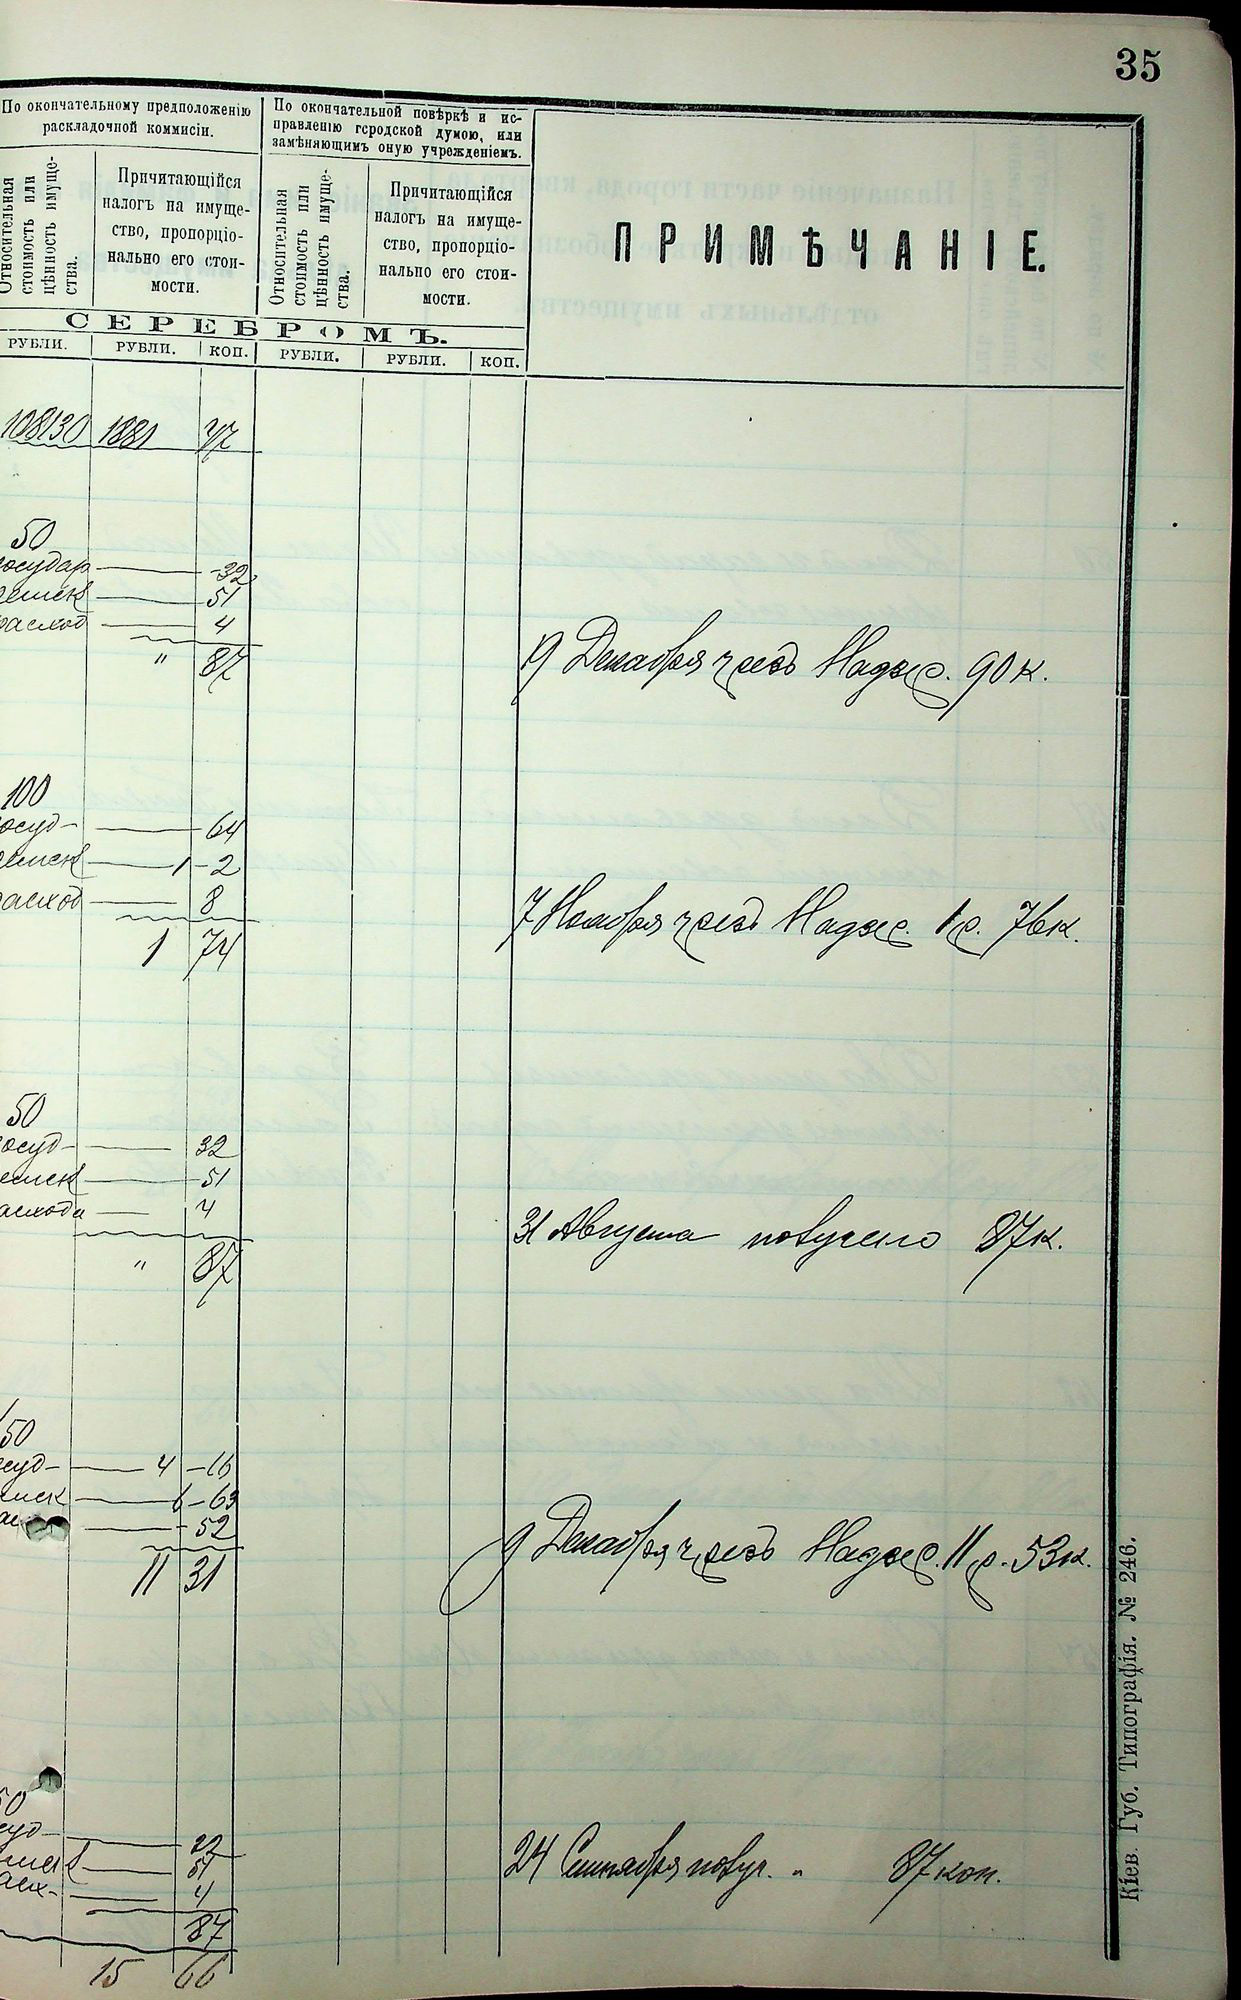 35
По окончательному предположенію
раскладочной коммисіи.
По окончательной повѣркѣ и ис-
правленію городской думою, или
замѣняющимъ оную учрежденіемъ.
Относительная
стоимость или
цѣнность имуще-
ства.
Причитающійся
налогъ на имуще-
ство, пропорціо-
нально его стои-
мости.
Относительная
стоимость или
цѣнность имуще-
ства.
Причитающійся
налогъ на имуще-
ство, пропорціо-
нально его стои-
мости.
ПРИМѢЧАНІЕ.
СЕРЕБРОМЪ.
РУБЛИ. РУБЛИ. КОП. РУБЛИ. РУБЛИ. КОП.
108130 1881 47
50
государ — 32
земск — 51
расход — 4
" 87
19 Декабря чрезъ Надзс. 90 к.
100
осуд — 64
емск — 1 – 2
расход — 8
1 74
7 Ноября чрезъ Надзс. 1 р. 76 к.
50
осуд — 32
емск — 51
асхода — 4
" 87
31 Августа получено 87 к.
50
суд — 4 – 16
мск — 6 – 63
52
11 31
9 Декабря чрезъ Надзс. 11 р. 53 к.
50
суд —
мск — 51
асх. — 4
87
24 Сентября получ. " 87 коп.
15 66
Кіев. Губ. Типографія. № 246.